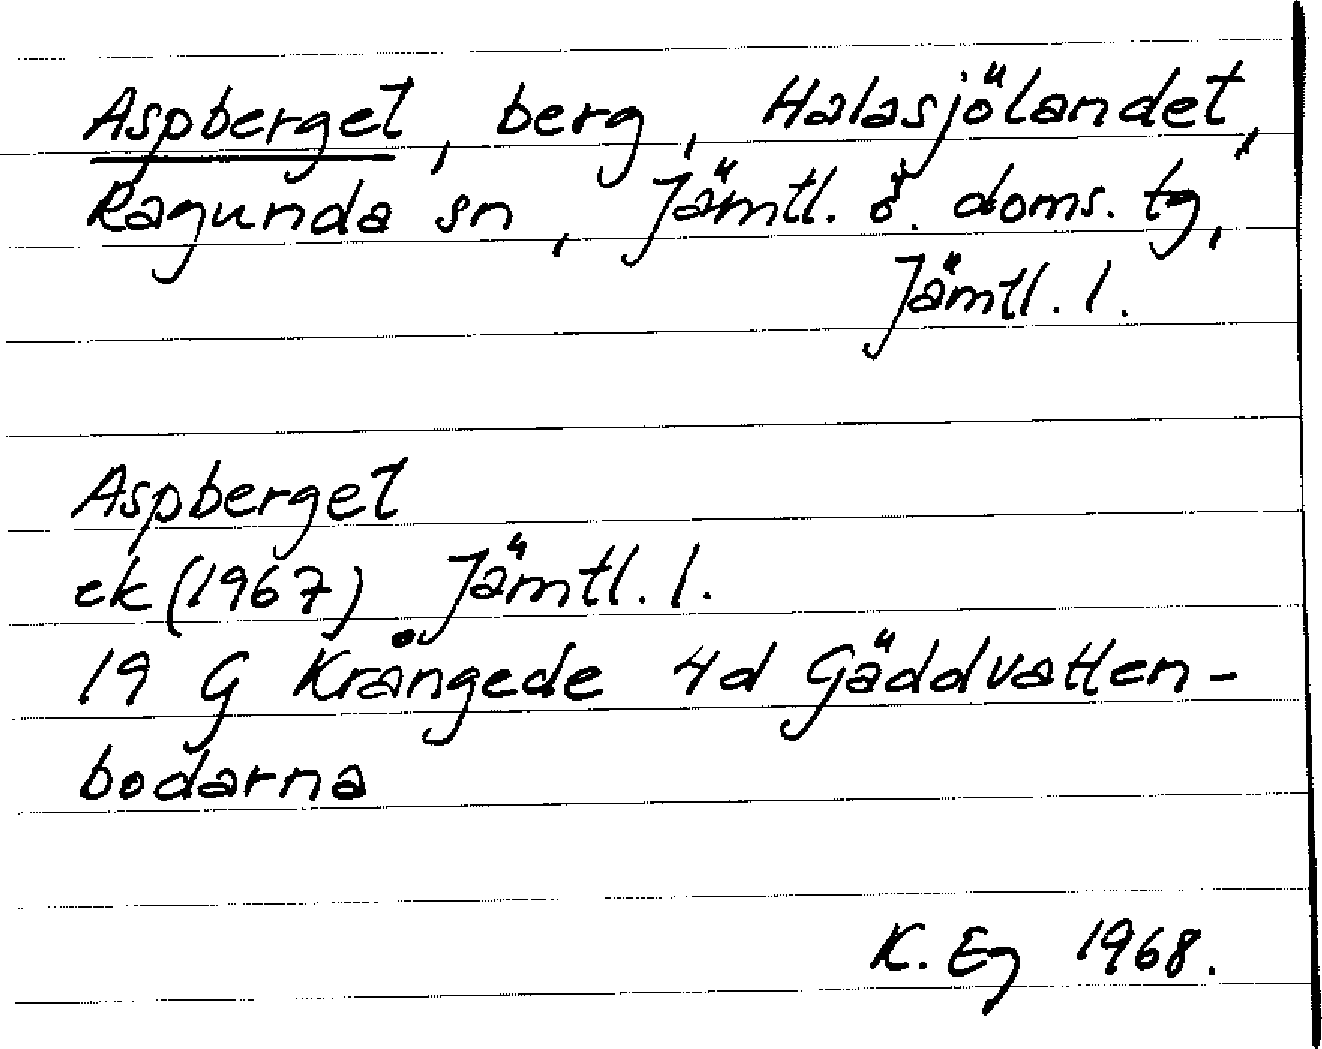 Aspberget, berg, Halasjölandet,
Ragunda sn, Jämtl. ö. doms. tg,
Jämtl. l.
Aspberget
ek (1967) Jämtl. l.
19 G Krångede 4d Gäddvatten-
bodarna
K. Eg 1968.